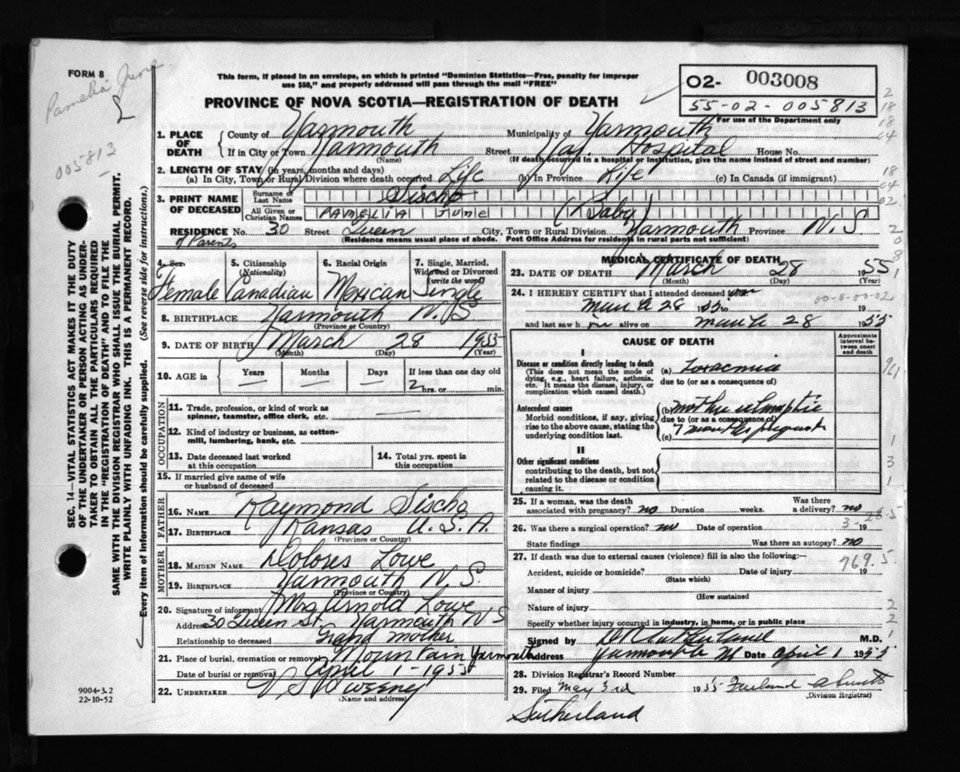 FORM 8
Pamelia June
005813
This form, if placed in an envelope, on which is printed "Dominion Statistics—Free, penalty for improper
use $50," and properly addressed will pass through the mail "FREE"
PROVINCE OF NOVA SCOTIA—REGISTRATION OF DEATH
02- 003008
55-02-005813
For use of the Department only
1. PLACE OF DEATH
County of Yarmouth Municipality of Yarmouth
If in City or Town Yarmouth Street Hospital House No.
(Name) (If death occurred in a hospital or institution, give the name instead of street and number)
2. LENGTH OF STAY (in years, months and days)
(a) In City, Town or Rural Division where death occurred Life (b) In Province Life (c) In Canada (if immigrant)
3. PRINT NAME OF DECEASED
Surname or Last Name
All Given or Christian Names PAMELIA JUNE (Baby)
RESIDENCE No. 30 Street Queen City, Town or Rural Division Yarmouth Province N.S.
of Parents
(Residence means usual place of abode. Post Office Address for residents in rural parts not sufficient)
4. Sex
Female
5. Citizenship
(Nationality)
Canadian
6. Racial Origin
Mexican
7. Single, Married, Widowed or Divorced
(write the word)
Single
8. BIRTHPLACE Yarmouth N.S
(Province or Country)
9. DATE OF BIRTH March 28 1955
(Month) (Day) (Year)
10. AGE in Years Months Days If less than one day old
2 hrs. or min.
OCCUPATION
11. Trade, profession, or kind of work as
spinner, teamster, office clerk, etc.
12. Kind of industry or business, as cotton-
mill, lumbering, bank, etc.
13. Date deceased last worked
at this occupation
14. Total yrs. spent in
this occupation
15. If married give name of wife
or husband of deceased
FATHER
16. NAME Raymond
17. BIRTHPLACE Kansas U.S.A
(Province or Country)
MOTHER
18. MAIDEN NAME Dolores Lowe
19. BIRTHPLACE Yarmouth N.S.
(Province or Country)
20. Signature of informant Mrs Arnold Lowe
Address 30 Queen St. Yarmouth NS
Relationship to deceased Grand mother
21. Place of burial, cremation or removal Mountain Yarmouth
Date of burial or removal April 1 - 1955
22. UNDERTAKER V S Sweeney
(Name and address)
MEDICAL CERTIFICATE OF DEATH
23. DATE OF DEATH March 28 1955
(Month) (Day) (Year)
24. I HEREBY CERTIFY that I attended deceased
March 28 1955 to
and last saw h alive on March 28 1955
CAUSE OF DEATH
Approximate interval between onset and death
I
Disease or condition directly leading to death
(This does not mean the mode of
dying, e.g., heart failure, asthenia,
etc. It means the disease, injury, or
complication which caused death.)
(a) Toxaemia
due to (or as a consequence of)
Antecedent causes
Morbid conditions, if any, giving
rise to the above cause, stating the
underlying condition last.
(b) mother eclamptic
due to (or as a consequence of)
(c) 7 months pregnant
II
Other significant conditions
contributing to the death, but not
related to the disease or condition
causing it.
25. If a woman, was the death
associated with pregnancy? no Duration weeks. Was there
a delivery? no
26. Was there a surgical operation? no Date of operation 19
State findings Was there an autopsy? no
27. If death was due to external causes (violence) fill in also the following:—
Accident, suicide or homicide? Date of injury 19
(State which)
769.5
Manner of injury
(How sustained
Nature of injury
Specify whether injury occurred in industry, in home, or in public place
Signed by M.D.
Address Yarmouth NS Date April 1 1955
28. Division Registrar's Record Number
29. Filed May 3rd 1955
(Division Registrar)
Sutherland
9004-3.2
22-10-52
SEC. 14—VITAL STATISTICS ACT MAKES IT THE DUTY
OF THE UNDERTAKER OR PERSON ACTING AS UNDER-
TAKER TO OBTAIN ALL THE PARTICULARS REQUIRED
IN THE "REGISTRATION OF DEATH" AND TO FILE THE
SAME WITH THE DIVISION REGISTRAR WHO SHALL ISSUE THE BURIAL PERMIT.
WRITE PLAINLY WITH UNFADING INK. THIS IS A PERMANENT RECORD.
Every item of information should be carefully supplied. (See reverse side for instructions.)